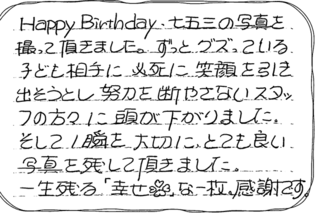 Happy Birthday・七五三の写真を
撮って頂きました。ずっとグズっている
子ども相手に必死に笑顔を引き
出そうとし努力を断やさないスタッ
フの方々に頭が下がりました。
そして1瞬を大切に、とても良い
写真を残して頂きました。
一生残る「幸せ」な一枚。感謝です。